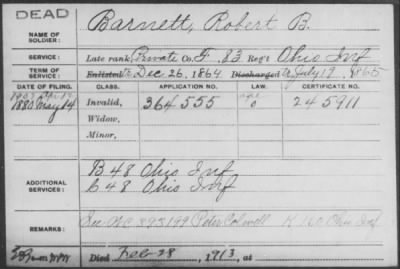 DEAD
NAME OF SOLDIER: Barnett, Robert B.
SERVICE: Late rank, Private Co. F, 83 Reg't Ohio Inf
TERM OF SERVICE: Enlisted Dec 26, 1864 Discharged July 19, 1865
DATE OF FILING. CLASS. APPLICATION NO. LAW. CERTIFICATE NO.
1880 May 14 Invalid, 364555 245911
Widow,
Minor,
ADDITIONAL SERVICES: B 48 Ohio Inf
C 48 Ohio Inf
REMARKS: See WC 393199 Peter Colwell K 160 Ohio Inf
Died Feb 28, 1913, at